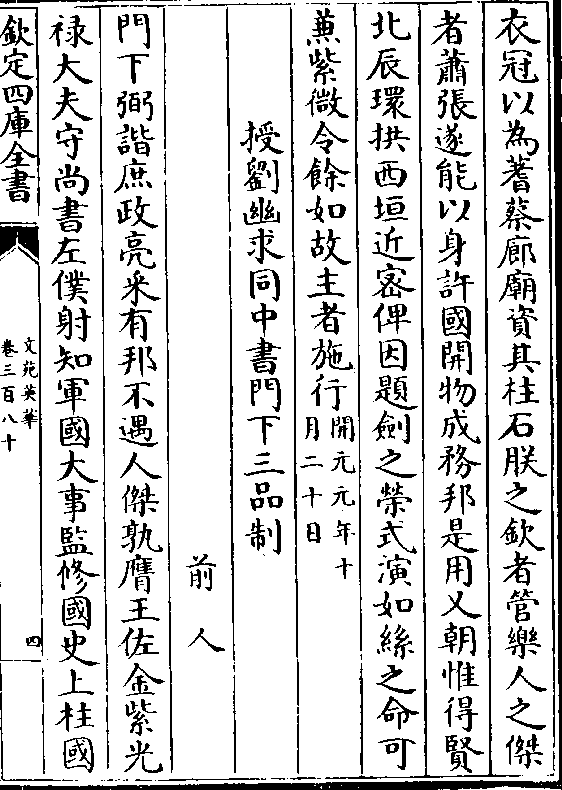 衣冠以為蓍蔡廊廟資其柱石朕之欽者管樂人之傑
者蕭張遂能以身許國開物成務邦是用乂朝惟得賢
北辰環拱西垣近密俾因題劍之榮式演如絲之命可
兼紫微令餘如故主者施行開元元年十
月二十日
授劉幽求同中書門下三品制
前人
門下弼諧庶政亮采有邦不遇人傑孰膺王佐金紫光
禄大夫守尚書左僕射知軍國大事監修國史上柱國
欽定四庫全書
文苑英華
卷三百八十
四